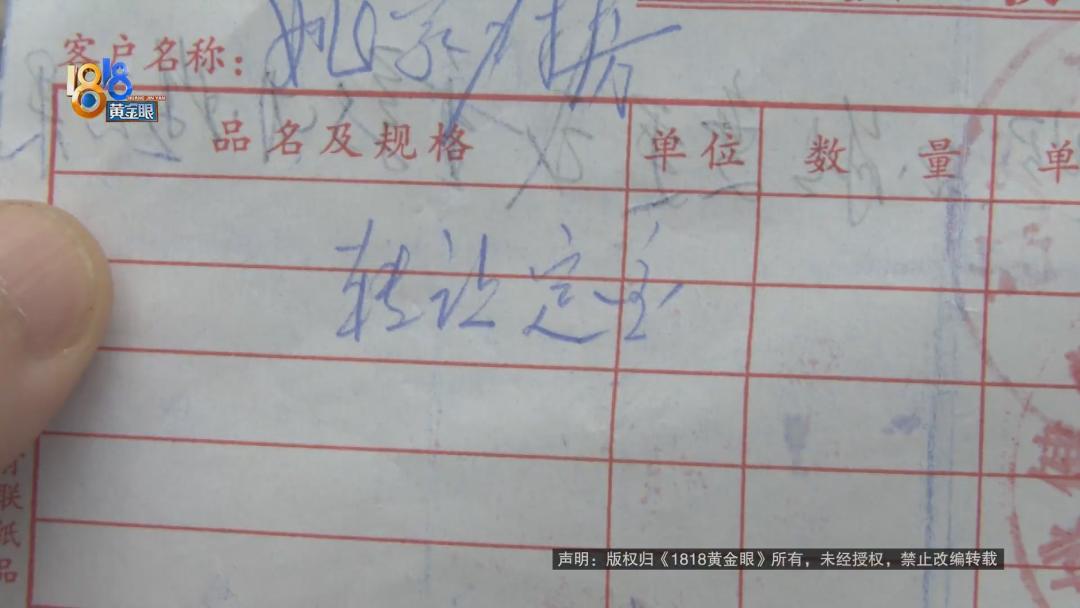 客户名称：姚家厨房
1818
黄金眼
品名及规格 单位 数量 单
转让定金
联纸品
声明：版权归《1818黄金眼》所有，未经授权，禁止改编转载